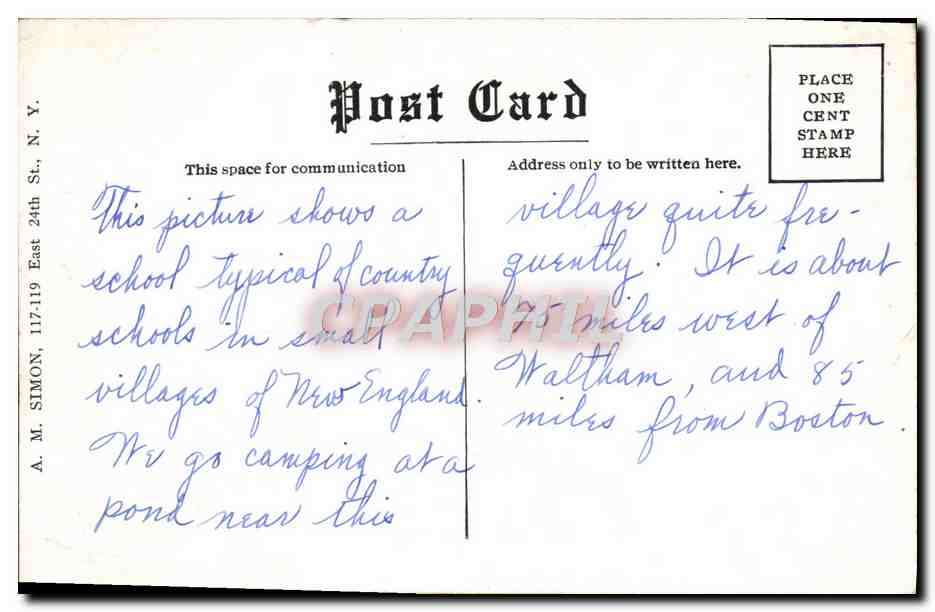 Post Card
PLACE
ONE
CENT
STAMP
HERE
This space for communication
Address only to be written here.
This picture shows a
school typical of country
schools in small
villages of New England.
We go camping at a
pond near this
village quite fre-
quently. It is about
75 miles west of
Waltham, and 85
miles from Boston.
A. M. SIMON, 117-119 East 24th St., N. Y.
CPAPHIL